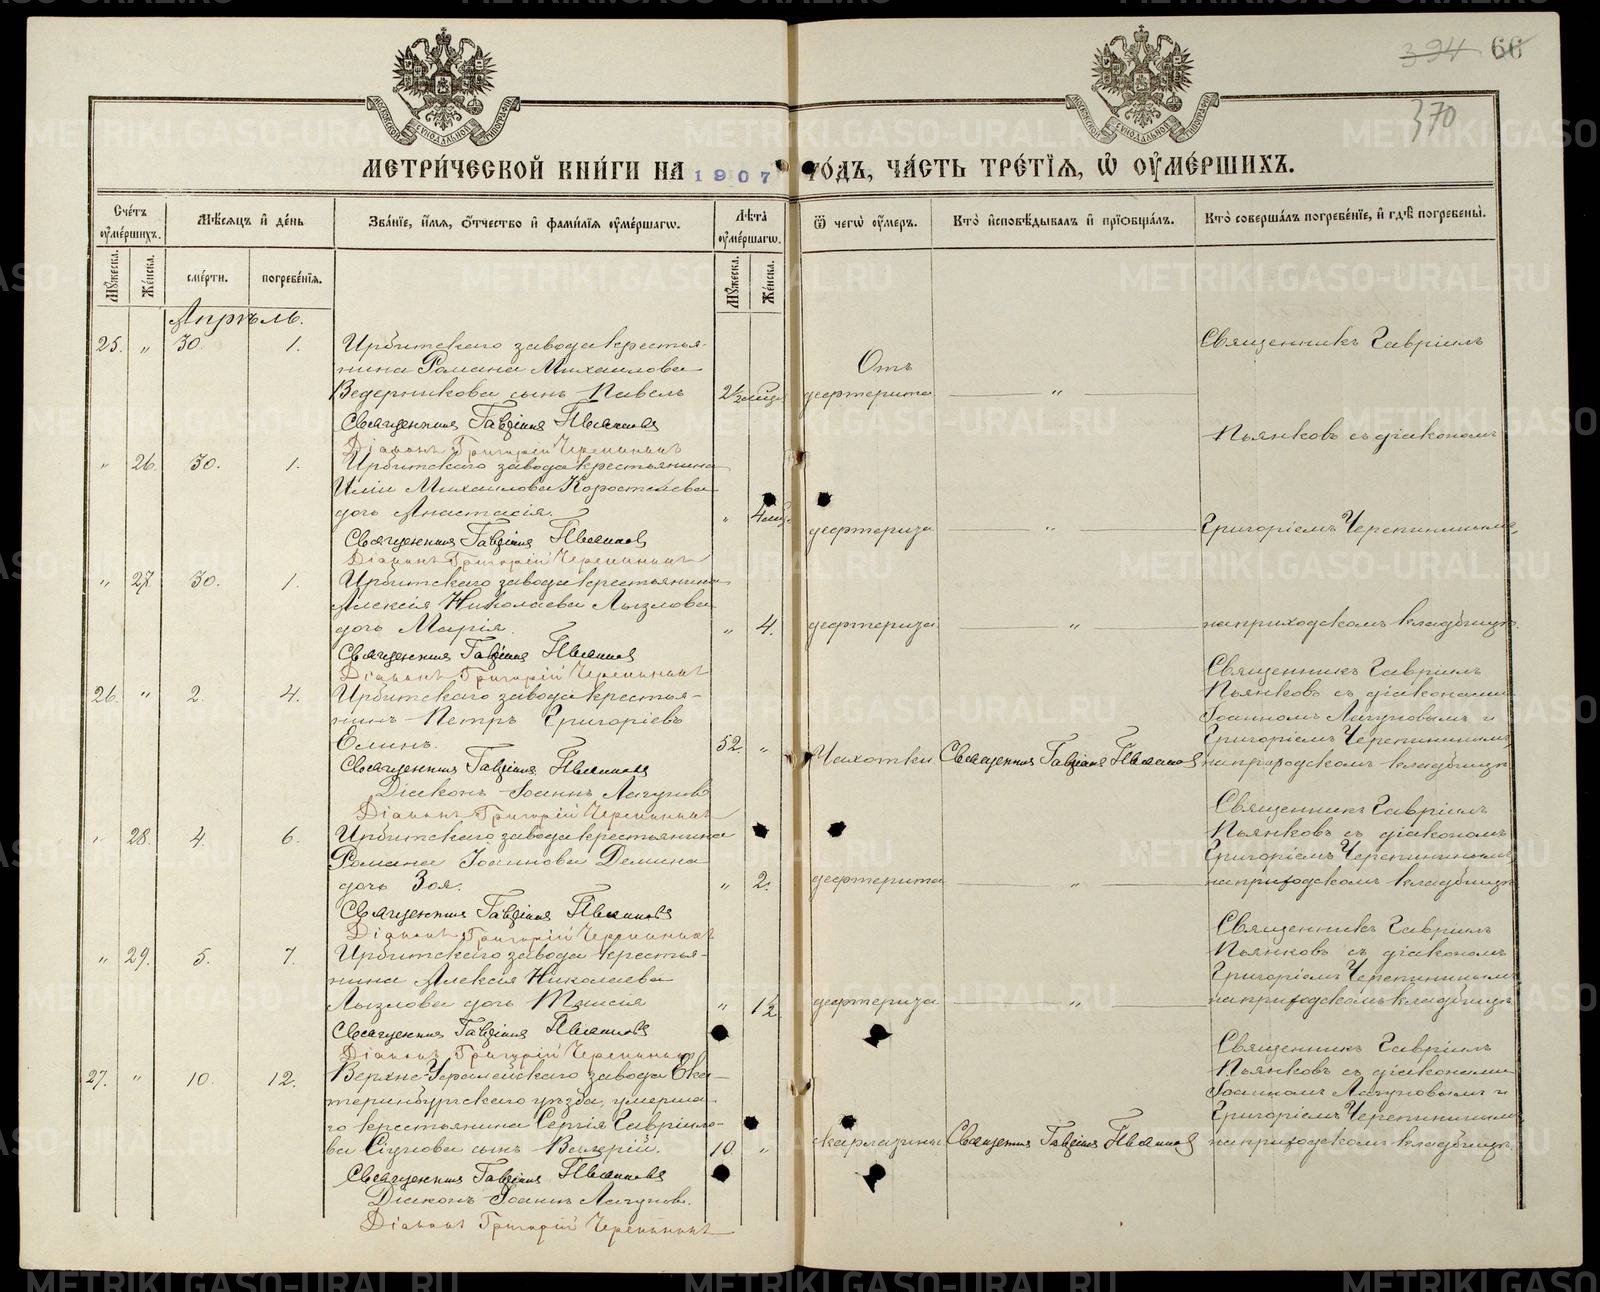 394 66
370
МЕТРИ́ЧЕСКОЙ КНИ́ГИ НА 1907 ГО́ДЪ, ЧА́СТЬ ТРЕ́ТЇѦ, Ѽ ОУ҆МЕ́РШИХЪ.
Сче́тъ оу҆ме́ршихъ.
Мѣ́сѧцъ и҆ де́нь
Зва́нїе, и҆́мѧ, о҆́тчество и҆ фамі́лїѧ оу҆ме́ршагѡ.
Лѣ́та оу҆ме́ршагѡ.
Ѿ чегѡ̀ оу҆́меръ.
Кто̀ и҆сповѣ́дывалъ и҆ прїѡбща́лъ.
Кто̀ соверша́лъ погребе́нїе, и҆ гдѣ̀ погребены̀.
Мꙋ́жеска.
Же́нска.
сме́рти.
погребе́нїѧ.
Мꙋ́жеска.
Же́нска.
Апрѣль.
25. „ 30. 1. Ирбитскаго завода крестья-
нина Романа Михаилова
Ведерникова сынъ Павелъ
Священникъ Гавріилъ Пьянковъ
Діаконъ Григорій Черепининъ
2½ От дифтерита „
Священникъ Гавріилъ
„ 26. 30. 1. Ирбитскаго завода крестьянина
Иліи Михаилова Коростелева
дочь Анастасія.
Священникъ Гавріилъ Пьянковъ
Діаконъ Григорій Черепининъ
„ 4 „
Пьянковъ съ діакономъ
Григоріемъ Черепининымъ,
„ 27. 30. 1. Ирбитскаго завода крестьянина
Алексія Николаева Лызлова
дочь Марія.
Священникъ Гавріилъ Пьянковъ
Діаконъ Григорій Черепининъ
„ 4. „
на приходскомъ кладбищѣ.
26. „ 2. 4. Ирбитскаго завода крестья-
нинъ Петръ Григоріевъ
Елинъ.
Священникъ Гавріилъ Пьянковъ
Діаконъ Іоаннъ Лагуновъ
Діаконъ Григорій Черепининъ
52. „ Чахотки Священникъ Гавріилъ Пьянковъ
Священникъ Гавріилъ
Пьянковъ съ діаконами
Іоанномъ Лагуновымъ и
Григоріемъ Черепининымъ,
на приходскомъ кладбищѣ
„ 28. 4. 6. Ирбитскаго завода крестьянина
Романа Іоаннова Демина
дочь Зоя.
Священникъ Гавріилъ Пьянковъ
Діаконъ Григорій Черепининъ
„ 2. дифтерита „
Священникъ Гавріилъ
Пьянковъ съ діакономъ
Григоріемъ Черепининымъ
на приходскомъ кладбищѣ
„ 29. 5. 7. Ирбитскаго завода крестья-
нина Алексія Николаева
Лызлова дочь Таисія
Священникъ Гавріилъ Пьянковъ
Діаконъ Григорій Черепининъ
„ 1½ „
Священникъ Гавріилъ
Пьянковъ съ діакономъ
Григоріемъ Черепининымъ
на приходскомъ кладбищѣ
27. „ 10. 12. Верхне-Уфалейскаго завода Ека-
теринбургскаго уѣзда, умерша-
го крестьянина Сергія Гаврило-
ва сынъ Валерій.
Священникъ Гавріилъ Пьянковъ
Діаконъ Іоаннъ Лагуновъ.
Діаконъ Григорій Черепининъ
10 „ скарлатины Священникъ Гавріилъ Пьянковъ
Священникъ Гавріилъ
Пьянковъ съ діаконами
Іоанномъ Лагуновымъ и
Григоріемъ Черепининымъ
на приходскомъ кладбищѣ.
METRIKI.GASO-URAL.RU